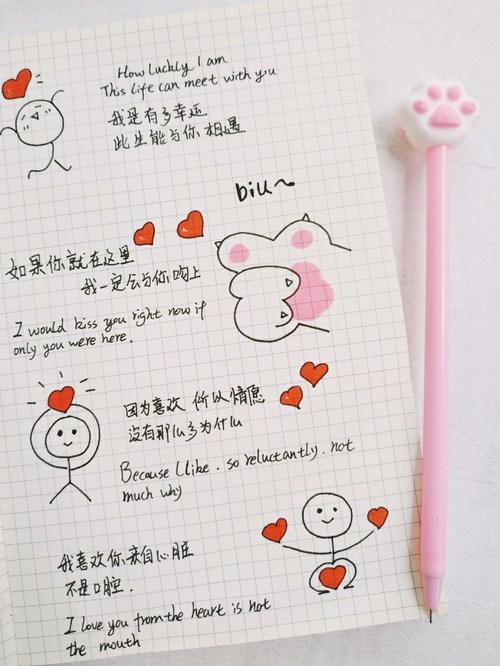 How Luckly I am
This life can meet with you
我是有多幸运
此生能与你相遇
biu~
如果你就在这里
我一定会与你吻上
I would kiss you right now if
only you were here.
因为喜欢 所以情愿
没有那么多为什么
Because I like. so reluctantly. not
much why
我喜欢你来自心脏
不是口腔.
I love you from the heart is not
the mouth